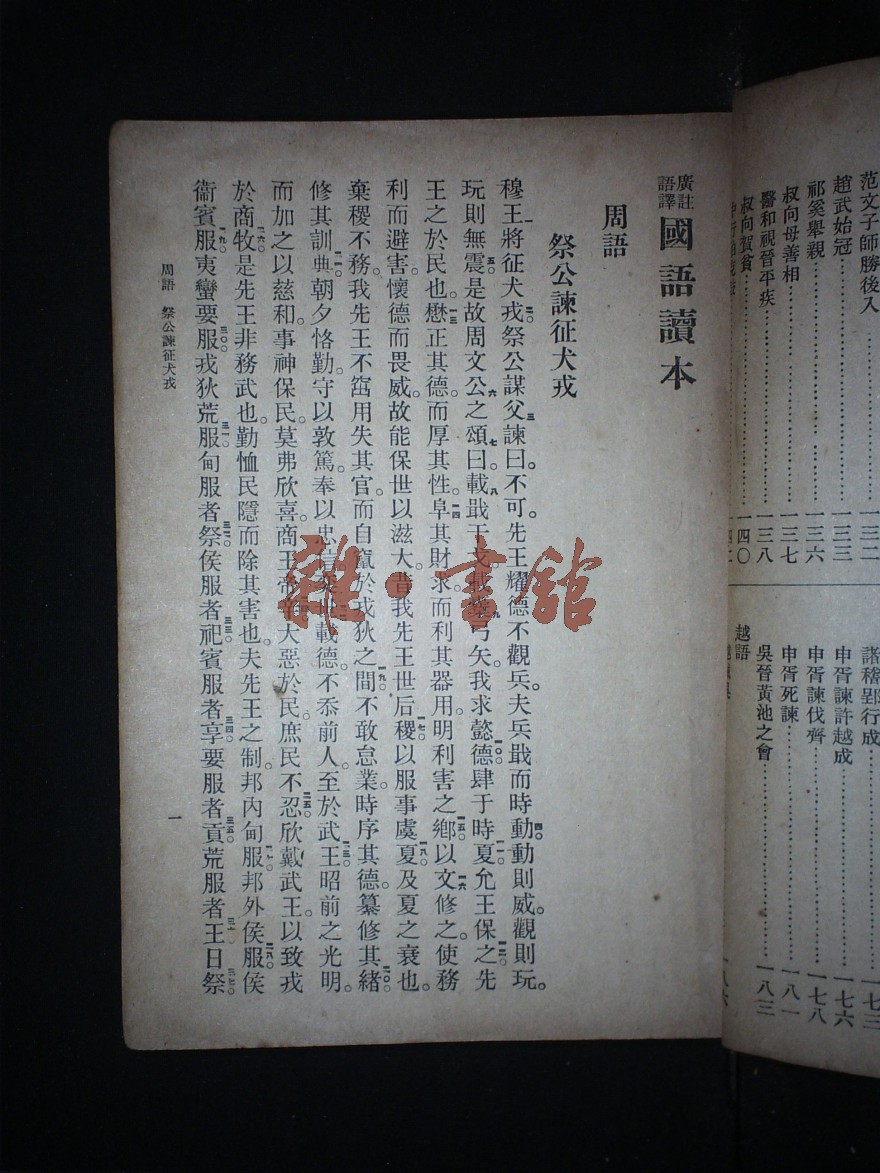 范文子師勝後入
趙武始冠……………一三三
祁奚舉親……………一三六
叔向母善相……………一三七
醫和視晉平疾……………一三八
叔向賀貧……………一四〇
諸稽郢行成……………一七三
申胥諫許越成……………一七六
申胥諫伐齊……………一七八
申胥死諫……………一八一
吳晉黃池之會……………一八三
越語
廣註
語譯
國語讀本
周語
祭公諫征犬戎
穆王將征犬戎。祭公謀父諫曰。不可。先王耀德不觀兵。夫兵戢而時動。動則威。觀則玩。
玩則無震。是故周文公之頌曰。載戢干戈。載櫜弓矢。我求懿德。肆于時夏。允王保之。先
王之於民也。懋正其德。而厚其性。阜其財求。而利其器用。明利害之鄉。以文修之。使務
利而避害。懷德而畏威。故能保世以滋大。昔我先王世后稷。以服事虞夏。及夏之衰也。
棄稷不務。我先王不窋用失其官。而自竄於戎狄之間。不敢怠業。時序其德。纂修其緒。
修其訓典。朝夕恪勤。守以敦篤。奉以忠信。奕世載德。不忝前人。至於武王。昭前之光明。
而加之以慈和。事神保民。莫弗欣喜。商王帝辛。大惡於民。庶民不忍。欣戴武王。以致戎
於商牧。是先王非務武也。勤恤民隱。而除其害也。夫先王之制。邦內甸服。邦外侯服。侯
衞賓服。夷蠻要服。戎狄荒服。甸服者祭。侯服者祀。賓服者享。要服者貢。荒服者王。日祭
周語 祭公諫征犬戎
一
雜·書館